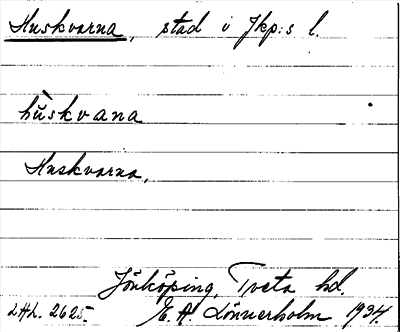 Huskvarna, stad i Jkp:s l.
hùskvana
Huskvarna,
Jönköping, Tveta hd.
LAL. 2625. E. A. Lönnerholm 1934